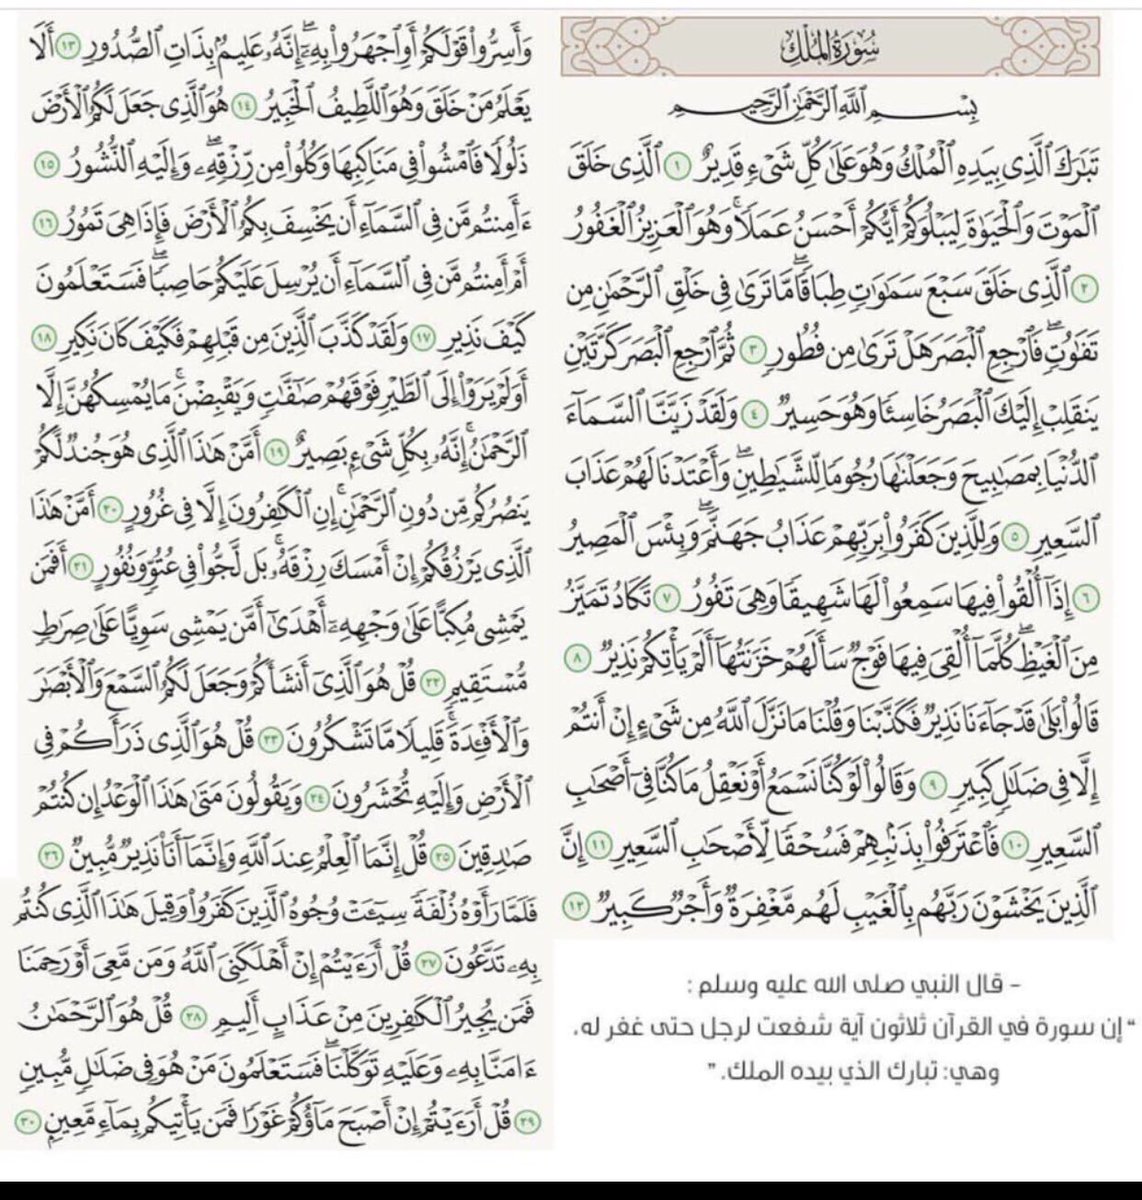 سُورَةُ المُلْكِ
بِسْمِ اللَّهِ الرَّحْمَٰنِ الرَّحِيمِ
تَبَٰرَكَ ٱلَّذِى بِيَدِهِ ٱلْمُلْكُ وَهُوَ عَلَىٰ كُلِّ شَىْءٍ قَدِيرٌ ١ ٱلَّذِى خَلَقَ
ٱلْمَوْتَ وَٱلْحَيَوٰةَ لِيَبْلُوَكُمْ أَيُّكُمْ أَحْسَنُ عَمَلًا ۚ وَهُوَ ٱلْعَزِيزُ ٱلْغَفُورُ
٢ ٱلَّذِى خَلَقَ سَبْعَ سَمَٰوَٰتٍ طِبَاقًا ۖ مَّا تَرَىٰ فِى خَلْقِ ٱلرَّحْمَٰنِ مِن
تَفَٰوُتٍ ۖ فَٱرْجِعِ ٱلْبَصَرَ هَلْ تَرَىٰ مِن فُطُورٍ ٣ ثُمَّ ٱرْجِعِ ٱلْبَصَرَ كَرَّتَيْنِ
يَنقَلِبْ إِلَيْكَ ٱلْبَصَرُ خَاسِئًا وَهُوَ حَسِيرٌ ٤ وَلَقَدْ زَيَّنَّا ٱلسَّمَآءَ
ٱلدُّنْيَا بِمَصَٰبِيحَ وَجَعَلْنَٰهَا رُجُومًا لِّلشَّيَٰطِينِ ۖ وَأَعْتَدْنَا لَهُمْ عَذَابَ
ٱلسَّعِيرِ ٥ وَلِلَّذِينَ كَفَرُوا۟ بِرَبِّهِمْ عَذَابُ جَهَنَّمَ ۖ وَبِئْسَ ٱلْمَصِيرُ
٦ إِذَآ أُلْقُوا۟ فِيهَا سَمِعُوا۟ لَهَا شَهِيقًا وَهِىَ تَفُورُ ٧ تَكَادُ تَمَيَّزُ
مِنَ ٱلْغَيْظِ ۖ كُلَّمَآ أُلْقِىَ فِيهَا فَوْجٌ سَأَلَهُمْ خَزَنَتُهَآ أَلَمْ يَأْتِكُمْ نَذِيرٌ ٨
قَالُوا۟ بَلَىٰ قَدْ جَآءَنَا نَذِيرٌ فَكَذَّبْنَا وَقُلْنَا مَا نَزَّلَ ٱللَّهُ مِن شَىْءٍ إِنْ أَنتُمْ
إِلَّا فِى ضَلَٰلٍ كَبِيرٍ ٩ وَقَالُوا۟ لَوْ كُنَّا نَسْمَعُ أَوْ نَعْقِلُ مَا كُنَّا فِىٓ أَصْحَٰبِ
ٱلسَّعِيرِ ١٠ فَٱعْتَرَفُوا۟ بِذَنۢبِهِمْ فَسُحْقًا لِّأَصْحَٰبِ ٱلسَّعِيرِ ١١ إِنَّ
ٱلَّذِينَ يَخْشَوْنَ رَبَّهُم بِٱلْغَيْبِ لَهُم مَّغْفِرَةٌ وَأَجْرٌ كَبِيرٌ ١٢
- قال النبي صلى الله عليه وسلم :
“ إن سورة في القرآن ثلاثون آية شفعت لرجل حتى غفر له،
وهي: تبارك الذي بيده الملك. ”
وَأَسِرُّوا۟ قَوْلَكُمْ أَوِ ٱجْهَرُوا۟ بِهِۦٓ ۖ إِنَّهُۥ عَلِيمٌۢ بِذَاتِ ٱلصُّدُورِ ١٣ أَلَا
يَعْلَمُ مَنْ خَلَقَ وَهُوَ ٱللَّطِيفُ ٱلْخَبِيرُ ١٤ هُوَ ٱلَّذِى جَعَلَ لَكُمُ ٱلْأَرْضَ
ذَلُولًا فَٱمْشُوا۟ فِى مَنَاكِبِهَا وَكُلُوا۟ مِن رِّزْقِهِۦ ۖ وَإِلَيْهِ ٱلنُّشُورُ ١٥
ءَأَمِنتُم مَّن فِى ٱلسَّمَآءِ أَن يَخْسِفَ بِكُمُ ٱلْأَرْضَ فَإِذَا هِىَ تَمُورُ ١٦
أَمْ أَمِنتُم مَّن فِى ٱلسَّمَآءِ أَن يُرْسِلَ عَلَيْكُمْ حَاصِبًا ۖ فَسَتَعْلَمُونَ
كَيْفَ نَذِيرِ ١٧ وَلَقَدْ كَذَّبَ ٱلَّذِينَ مِن قَبْلِهِمْ فَكَيْفَ كَانَ نَكِيرِ ١٨
أَوَلَمْ يَرَوْا۟ إِلَى ٱلطَّيْرِ فَوْقَهُمْ صَٰٓفَّٰتٍ وَيَقْبِضْنَ ۚ مَا يُمْسِكُهُنَّ إِلَّا
ٱلرَّحْمَٰنُ ۚ إِنَّهُۥ بِكُلِّ شَىْءٍۭ بَصِيرٌ ١٩ أَمَّنْ هَٰذَا ٱلَّذِى هُوَ جُندٌ لَّكُمْ
يَنصُرُكُم مِّن دُونِ ٱلرَّحْمَٰنِ ۚ إِنِ ٱلْكَٰفِرُونَ إِلَّا فِى غُرُورٍ ٢٠ أَمَّنْ هَٰذَا
ٱلَّذِى يَرْزُقُكُمْ إِنْ أَمْسَكَ رِزْقَهُۥ ۚ بَل لَّجُّوا۟ فِى عُتُوٍّ وَنُفُورٍ ٢١ أَفَمَن
يَمْشِى مُكِبًّا عَلَىٰ وَجْهِهِۦٓ أَهْدَىٰٓ أَمَّن يَمْشِى سَوِيًّا عَلَىٰ صِرَٰطٍ
مُّسْتَقِيمٍ ٢٢ قُلْ هُوَ ٱلَّذِىٓ أَنشَأَكُمْ وَجَعَلَ لَكُمُ ٱلسَّمْعَ وَٱلْأَبْصَٰرَ
وَٱلْأَفْـِٔدَةَ ۖ قَلِيلًا مَّا تَشْكُرُونَ ٢٣ قُلْ هُوَ ٱلَّذِى ذَرَأَكُمْ فِى
ٱلْأَرْضِ وَإِلَيْهِ تُحْشَرُونَ ٢٤ وَيَقُولُونَ مَتَىٰ هَٰذَا ٱلْوَعْدُ إِن كُنتُمْ
صَٰدِقِينَ ٢٥ قُلْ إِنَّمَا ٱلْعِلْمُ عِندَ ٱللَّهِ وَإِنَّمَآ أَنَا۠ نَذِيرٌ مُّبِينٌ ٢٦
فَلَمَّا رَأَوْهُ زُلْفَةً سِيٓـَٔتْ وُجُوهُ ٱلَّذِينَ كَفَرُوا۟ وَقِيلَ هَٰذَا ٱلَّذِى كُنتُم
بِهِۦ تَدَّعُونَ ٢٧ قُلْ أَرَءَيْتُمْ إِنْ أَهْلَكَنِىَ ٱللَّهُ وَمَن مَّعِىَ أَوْ رَحِمَنَا
فَمَن يُجِيرُ ٱلْكَٰفِرِينَ مِنْ عَذَابٍ أَلِيمٍ ٢٨ قُلْ هُوَ ٱلرَّحْمَٰنُ
ءَامَنَّا بِهِۦ وَعَلَيْهِ تَوَكَّلْنَا ۖ فَسَتَعْلَمُونَ مَنْ هُوَ فِى ضَلَٰلٍ مُّبِينٍ
٢٩ قُلْ أَرَءَيْتُمْ إِنْ أَصْبَحَ مَآؤُكُمْ غَوْرًا فَمَن يَأْتِيكُم بِمَآءٍ مَّعِينٍۭ ٣٠